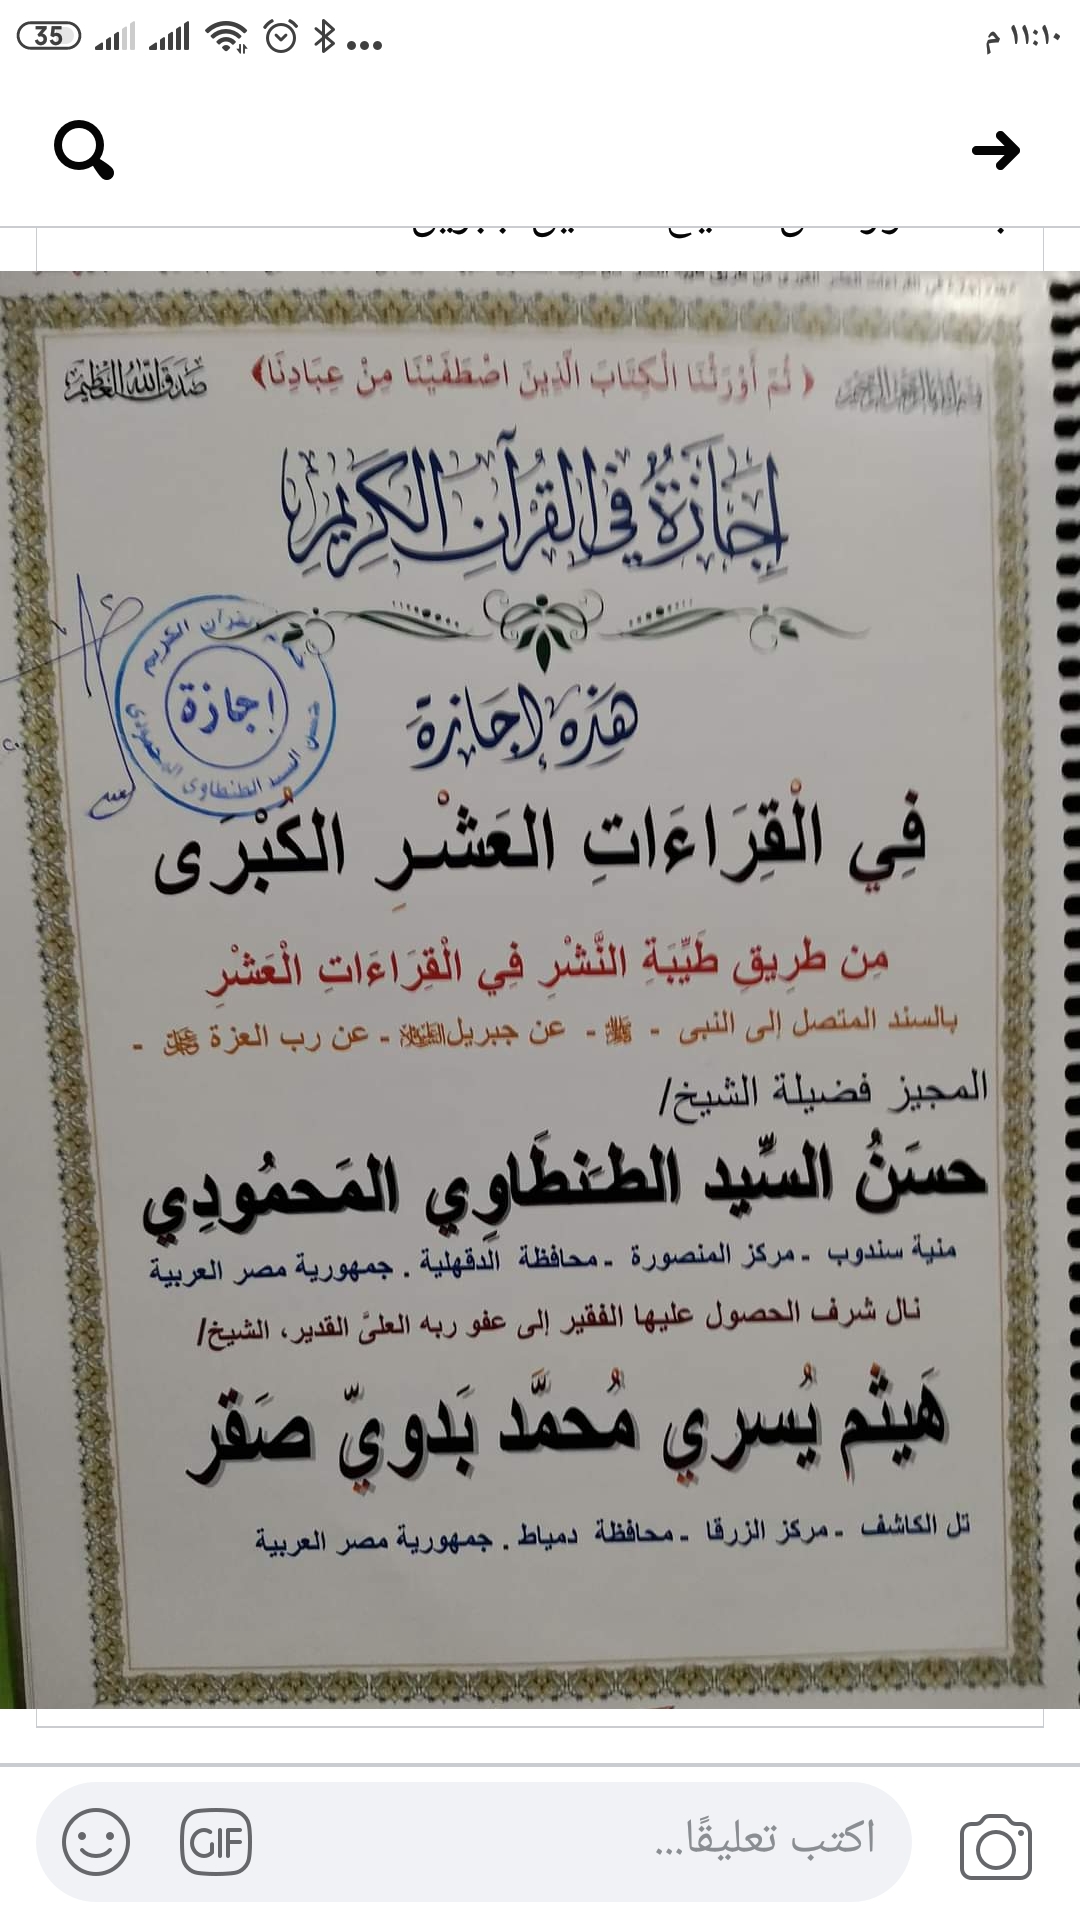 35
١١:١٠ م
صدق الله العظيم ﴿ ثُمَّ أَوْرَثْنَا الْكِتَابَ الَّذِينَ اصْطَفَيْنَا مِنْ عِبَادِنَا﴾ بسم الله الرحمن الرحيم
إِجَازَةٌ فِي القُرآنِ الكَرِيمِ
القرآن الكريم
إجازة
حسن السيد الطنطاوى المحمودى
هَذِهِ إِجَازَةٌ
فِي الْقِرَاءَاتِ العَشْرِ الكُبْرَى
مِن طَرِيقِ طَيِّبَةِ النَّشْرِ فِي الْقِرَاءَاتِ الْعَشْرِ
بالسند المتصل إلى النبى - ﷺ - عن جبريل - عن رب العزة ﷻ -
المجيز فضيلة الشيخ/
حسَنُ السيِّد الطنطَاوِي المَحمُودِي
منية سندوب - مركز المنصورة - محافظة الدقهلية . جمهورية مصر العربية
نال شرف الحصول عليها الفقير إلى عفو ربه العلىَّ القدير، الشيخ/
هَيثم يُسري مُحمَّد بَدويّ صَقر
تل الكاشف - مركز الزرقا - محافظة دمياط . جمهورية مصر العربية
GIF
اكتب تعليقًا...